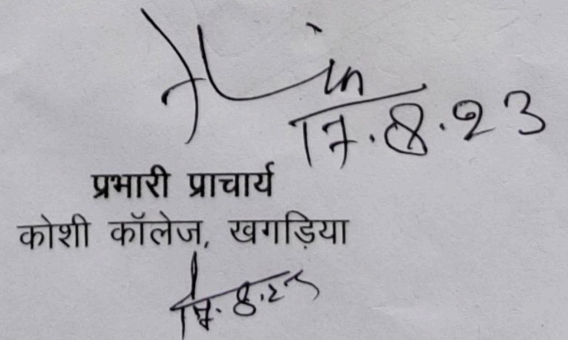 17.8.23
प्रभारी प्राचार्य
कोशी कॉलेज, खगड़िया
17.8.23